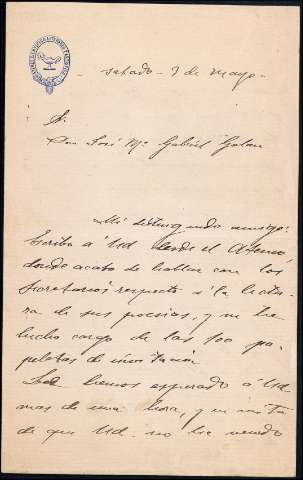 sabado - 3 de mayo -
Sr.
Don José Mª Gabriel Galan
Mi distinguido amigo:
Escribo á Ud desde el Ateneo,
donde acabo de hablar con los
Secretarios respecto á la lectu-
ra de sus poesias, y me he
hecho cargo de las 100 pa-
peletas de invitación
Le hemos esperado á Ud
mas de una hora, y en vista
de que Ud. no ha venido